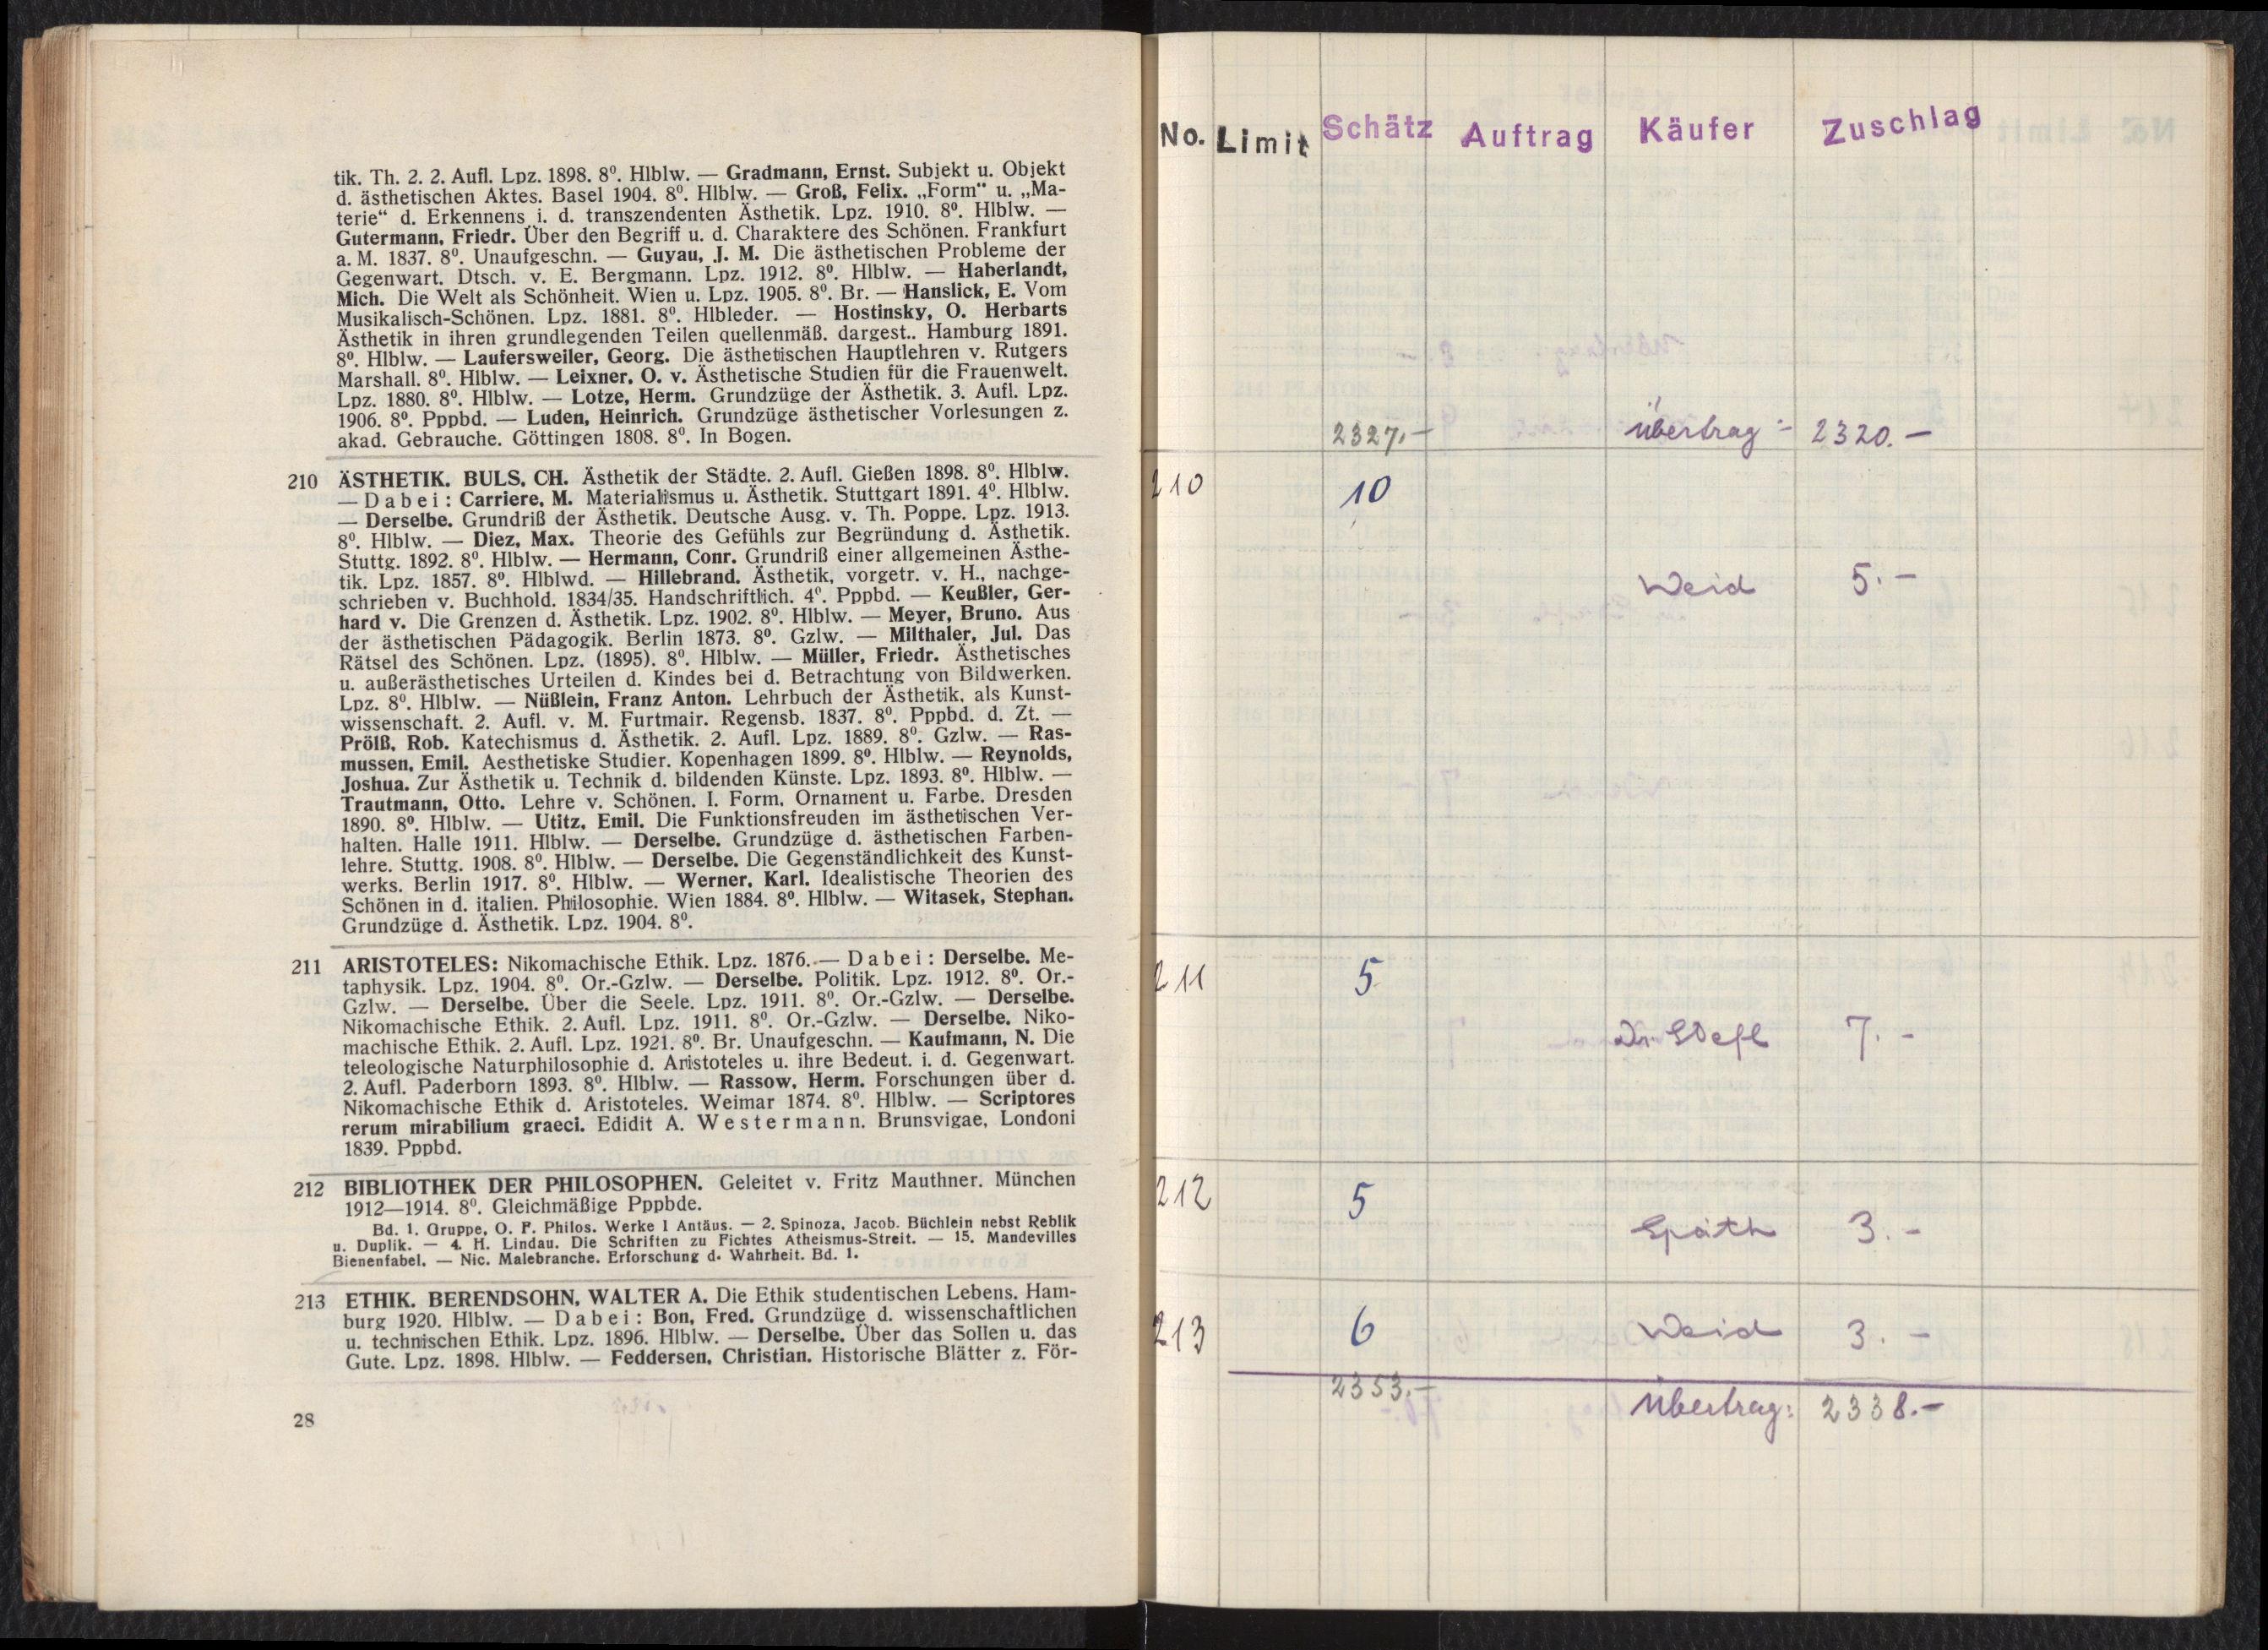 tik. Th. 2. 2. Aufl. Lpz. 1898. 8⁰. Hlblw. — Gradmann, Ernst. Subjekt u. Objekt
d. ästhetischen Aktes. Basel 1904. 8⁰. Hlblw. — Groß, Felix. „Form“ u. „Ma-
terie“ d. Erkennens i. d. transzendenten Ästhetik. Lpz. 1910. 8⁰. Hlblw. —
Gutermann, Friedr. Über den Begriff u. d. Charaktere des Schönen. Frankfurt
a. M. 1837. 8⁰. Unaufgeschn. — Guyau, J. M. Die ästhetischen Probleme der
Gegenwart. Dtsch. v. E. Bergmann. Lpz. 1912. 8⁰. Hlblw. — Haberlandt,
Mich. Die Welt als Schönheit. Wien u. Lpz. 1905. 8⁰. Br. — Hanslick, E. Vom
Musikalisch-Schönen. Lpz. 1881. 8⁰. Hlbleder. — Hostinsky, O. Herbarts
Ästhetik in ihren grundlegenden Teilen quellenmäß. dargest.. Hamburg 1891.
8⁰. Hlblw. — Laufersweiler, Georg. Die ästhetischen Hauptlehren v. Rutgers
Marshall. 8⁰. Hlblw. — Leixner, O. v. Ästhetische Studien für die Frauenwelt.
Lpz. 1880. 8⁰. Hlblw. — Lotze, Herm. Grundzüge der Ästhetik. 3. Aufl. Lpz.
1906. 8⁰. Pppbd. — Luden, Heinrich. Grundzüge ästhetischer Vorlesungen z.
akad. Gebrauche. Göttingen 1808. 8⁰. In Bogen.
210 ÄSTHETIK. BULS, CH. Ästhetik der Städte. 2. Aufl. Gießen 1898. 8⁰. Hlblw.
— Dabei: Carriere, M. Materialismus u. Ästhetik. Stuttgart 1891. 4⁰. Hlblw.
— Derselbe. Grundriß der Ästhetik. Deutsche Ausg. v. Th. Poppe. Lpz. 1913.
8⁰. Hlblw. — Diez, Max. Theorie des Gefühls zur Begründung d. Ästhetik.
Stuttg. 1892. 8⁰. Hlblw. — Hermann, Conr. Grundriß einer allgemeinen Ästhe-
tik. Lpz. 1857. 8⁰. Hlblwd. — Hillebrand. Ästhetik, vorgetr. v. H., nachge-
schrieben v. Buchhold. 1834/35. Handschriftlich. 4⁰. Pppbd. — Keußler, Ger-
hard v. Die Grenzen d. Ästhetik. Lpz. 1902. 8⁰. Hlblw. — Meyer, Bruno. Aus
der ästhetischen Pädagogik. Berlin 1873. 8⁰. Gzlw. — Milthaler, Jul. Das
Rätsel des Schönen. Lpz. (1895). 8⁰. Hlblw. — Müller, Friedr. Ästhetisches
u. außerästhetisches Urteilen d. Kindes bei d. Betrachtung von Bildwerken.
Lpz. 8⁰. Hlblw. — Nüßlein, Franz Anton. Lehrbuch der Ästhetik, als Kunst-
wissenschaft. 2. Aufl. v. M. Furtmair. Regensb. 1837. 8⁰. Pppbd. d. Zt. —
Prölß, Rob. Katechismus d. Ästhetik. 2. Aufl. Lpz. 1889. 8⁰. Gzlw. — Ras-
mussen, Emil. Aesthetiske Studier. Kopenhagen 1899. 8⁰. Hlblw. — Reynolds,
Joshua. Zur Ästhetik u. Technik d. bildenden Künste. Lpz. 1893. 8⁰. Hlblw. —
Trautmann, Otto. Lehre v. Schönen. I. Form, Ornament u. Farbe. Dresden
1890. 8⁰. Hlblw. — Utitz, Emil. Die Funktionsfreuden im ästhetischen Ver-
halten. Halle 1911. Hlblw. — Derselbe. Grundzüge d. ästhetischen Farben-
lehre. Stuttg. 1908. 8⁰. Hlblw. — Derselbe. Die Gegenständlichkeit des Kunst-
werks. Berlin 1917. 8⁰. Hlblw. — Werner, Karl. Idealistische Theorien des
Schönen in d. italien. Philosophie. Wien 1884. 8⁰. Hlblw. — Witasek, Stephan.
Grundzüge d. Ästhetik. Lpz. 1904. 8⁰.
211 ARISTOTELES: Nikomachische Ethik. Lpz. 1876. — Dabei: Derselbe. Me-
taphysik. Lpz. 1904. 8⁰. Or.-Gzlw. — Derselbe. Politik. Lpz. 1912. 8⁰. Or.-
Gzlw. — Derselbe. Über die Seele. Lpz. 1911. 8⁰. Or.-Gzlw. — Derselbe.
Nikomachische Ethik. 2. Aufl. Lpz. 1911. 8⁰. Or.-Gzlw. — Derselbe. Niko-
machische Ethik. 2. Aufl. Lpz. 1921. 8⁰. Br. Unaufgeschn. — Kaufmann, N. Die
teleologische Naturphilosophie d. Aristoteles u. ihre Bedeut. i. d. Gegenwart.
2. Aufl. Paderborn 1893. 8⁰. Hlblw. — Rassow, Herm. Forschungen über d.
Nikomachische Ethik d. Aristoteles. Weimar 1874. 8⁰. Hlblw. — Scriptores
rerum mirabilium graeci. Edidit A. Westermann. Brunsvigae, Londoni
1839. Pppbd.
212 BIBLIOTHEK DER PHILOSOPHEN. Geleitet v. Fritz Mauthner. München
1912—1914. 8⁰. Gleichmäßige Pppbde.
Bd. 1. Gruppe, O. F. Philos. Werke I Antäus. — 2. Spinoza, Jacob. Büchlein nebst Reblik
u. Duplik. — 4. H. Lindau. Die Schriften zu Fichtes Atheismus-Streit. — 15. Mandevilles
Bienenfabel. — Nic. Malebranche. Erforschung d. Wahrheit. Bd. 1.
213 ETHIK. BERENDSOHN, WALTER A. Die Ethik studentischen Lebens. Ham-
burg 1920. Hlblw. — Dabei: Bon, Fred. Grundzüge d. wissenschaftlichen
u. technischen Ethik. Lpz. 1896. Hlblw. — Derselbe. Über das Sollen u. das
Gute. Lpz. 1898. Hlblw. — Feddersen, Christian. Historische Blätter z. För-
28
No. Limit Schätz Auftrag Käufer Zuschlag
2327.— Übertrag: 2320.—
210 10
Weid 5.—
211 5
Dr. 7.—
212 5
Späth 3.—
213 6 Weid 3.—
2353.— Übertrag: 2338.—